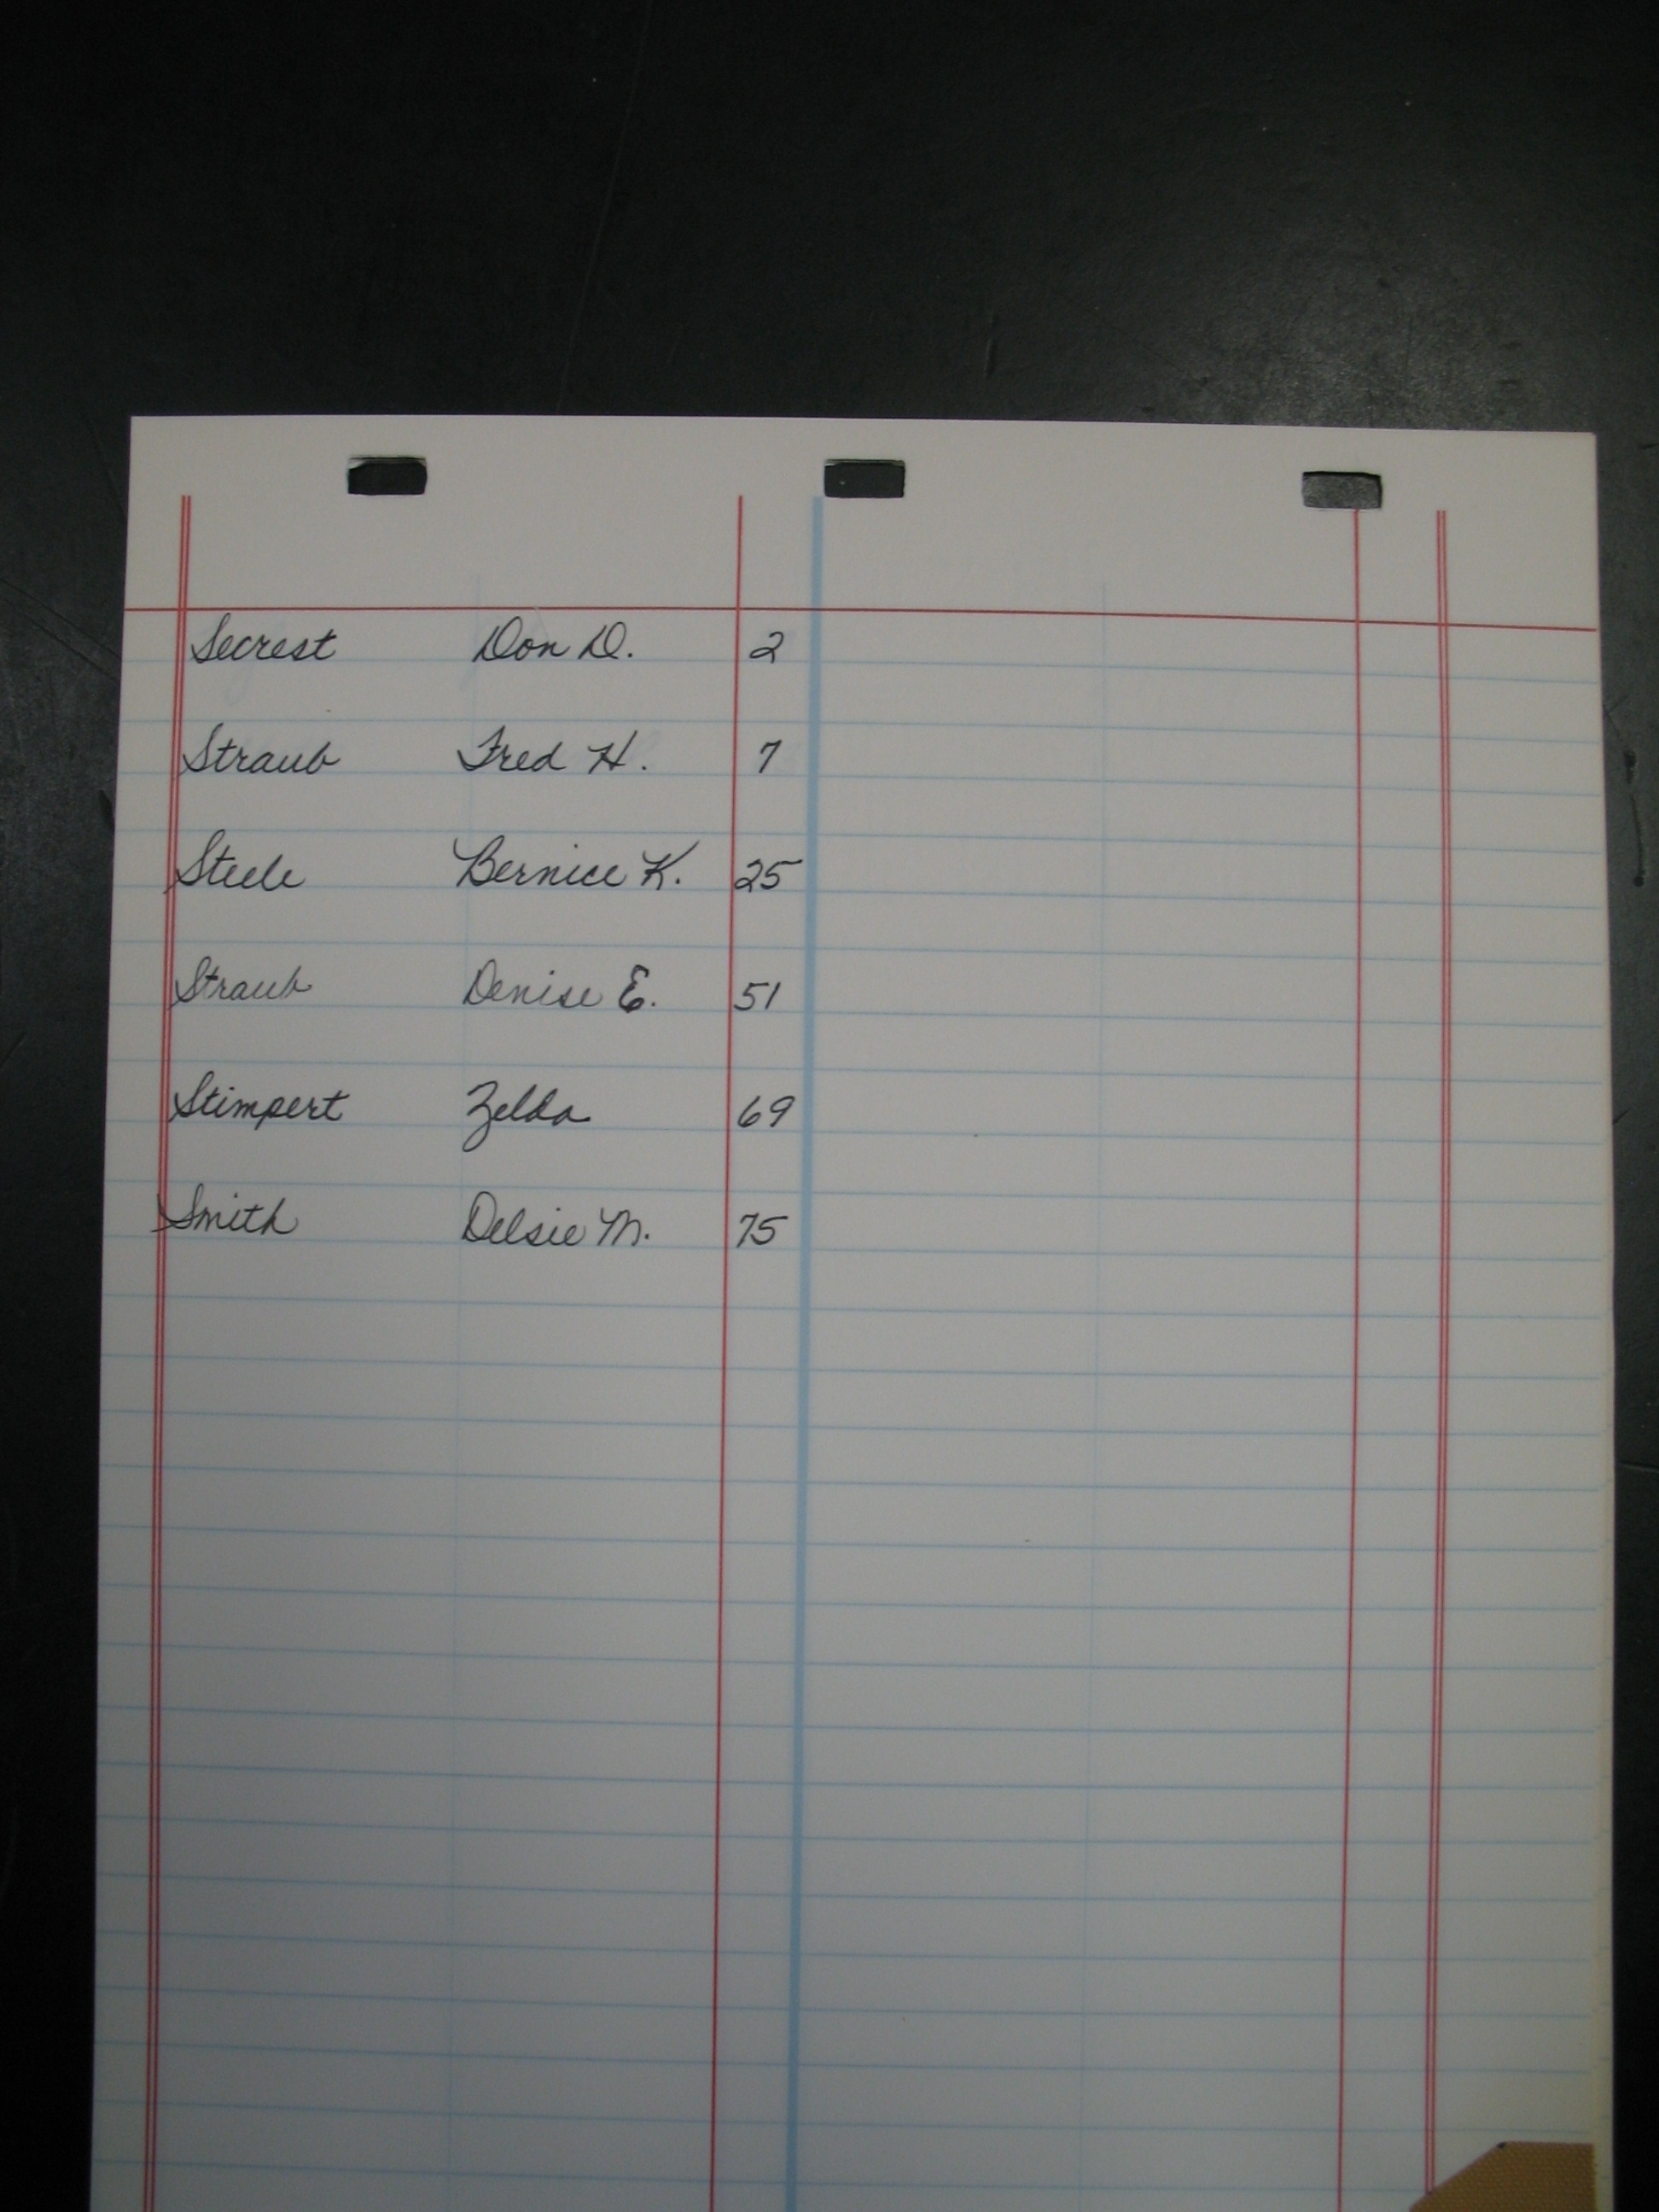 Secrest Don D. 2
Straub Fred H. 7
Steele Bernice K. 25
Straub Denise E. 51
Stimpert Zelda 69
Smith Delsie M. 75